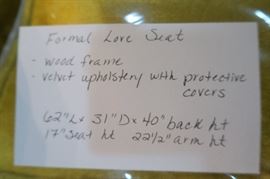 Formal Love Seat
- wood frame
- velvet upholstery with protective
covers
62"L x 31"D x 40" back ht
17" seat ht 22 1/2" arm ht